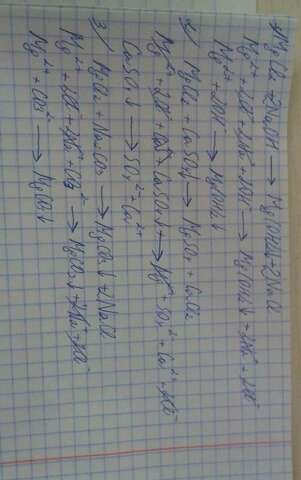 MgCl₂ + 2NaOH → Mg(OH)₂↓ + 2NaCl
Mg²⁺ + 2Cl⁻ + 2Na⁺ + 2OH⁻ → Mg(OH)₂↓ + 2Na⁺ + 2Cl⁻
Mg²⁺ + 2OH⁻ → Mg(OH)₂↓
2) MgCl₂ + CaSO₄↓ → MgSO₄ + CaCl₂
Mg²⁺ + 2Cl⁻ + CaSO₄↓ → Mg²⁺ + SO₄²⁻ + Ca²⁺ + 2Cl⁻
CaSO₄↓ → SO₄²⁻ + Ca²⁺
3) MgCl₂ + Na₂CO₃ → MgCO₃↓ + 2NaCl
Mg²⁺ + 2Cl⁻ + 2Na⁺ + CO₃²⁻ → MgCO₃↓ + 2Na⁺ + 2Cl⁻
Mg²⁺ + CO₃²⁻ → MgCO₃↓